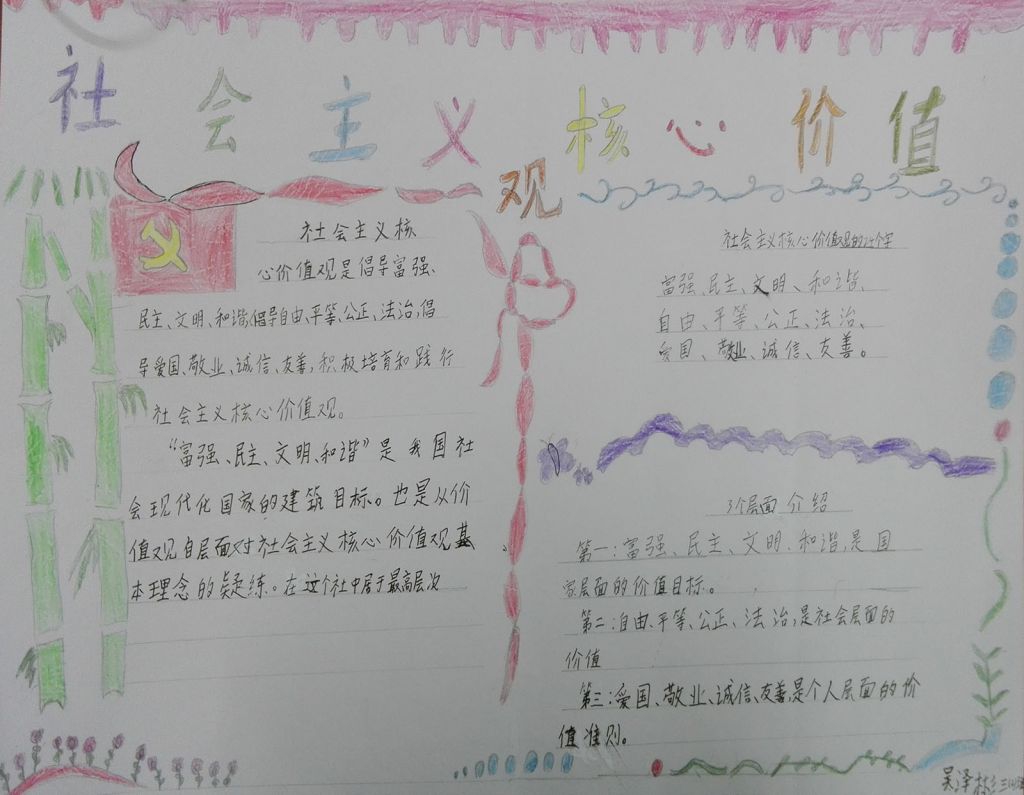 社会主义核心价值
观
社会主义核
心价值观是倡导富强、
民主、文明、和谐,倡导自由、平等、公正、法治,倡
导爱国、敬业、诚信、友善,积极培育和践行
社会主义核心价值观。
“富强、民主、文明、和谐”是我国社
会现代化国家的建筑目标。也是从价
值观自层面对社会主义核心价值观基
本理念的疑练。在这个社中居于最高层次
社会主义核心价值观的个字
富强、民主、文明、和谐、
自由、平等、公正、法治、
爱国、敬业、诚信、友善。
3个层面介绍
第一:富强、民主、文明、和谐,是国
家层面的价值目标。
第二:自由、平等、公正、法治,是社会层面的
价值
第三:爱国、敬业、诚信、友善,是个人层面的价
值准则。
吴泽彬